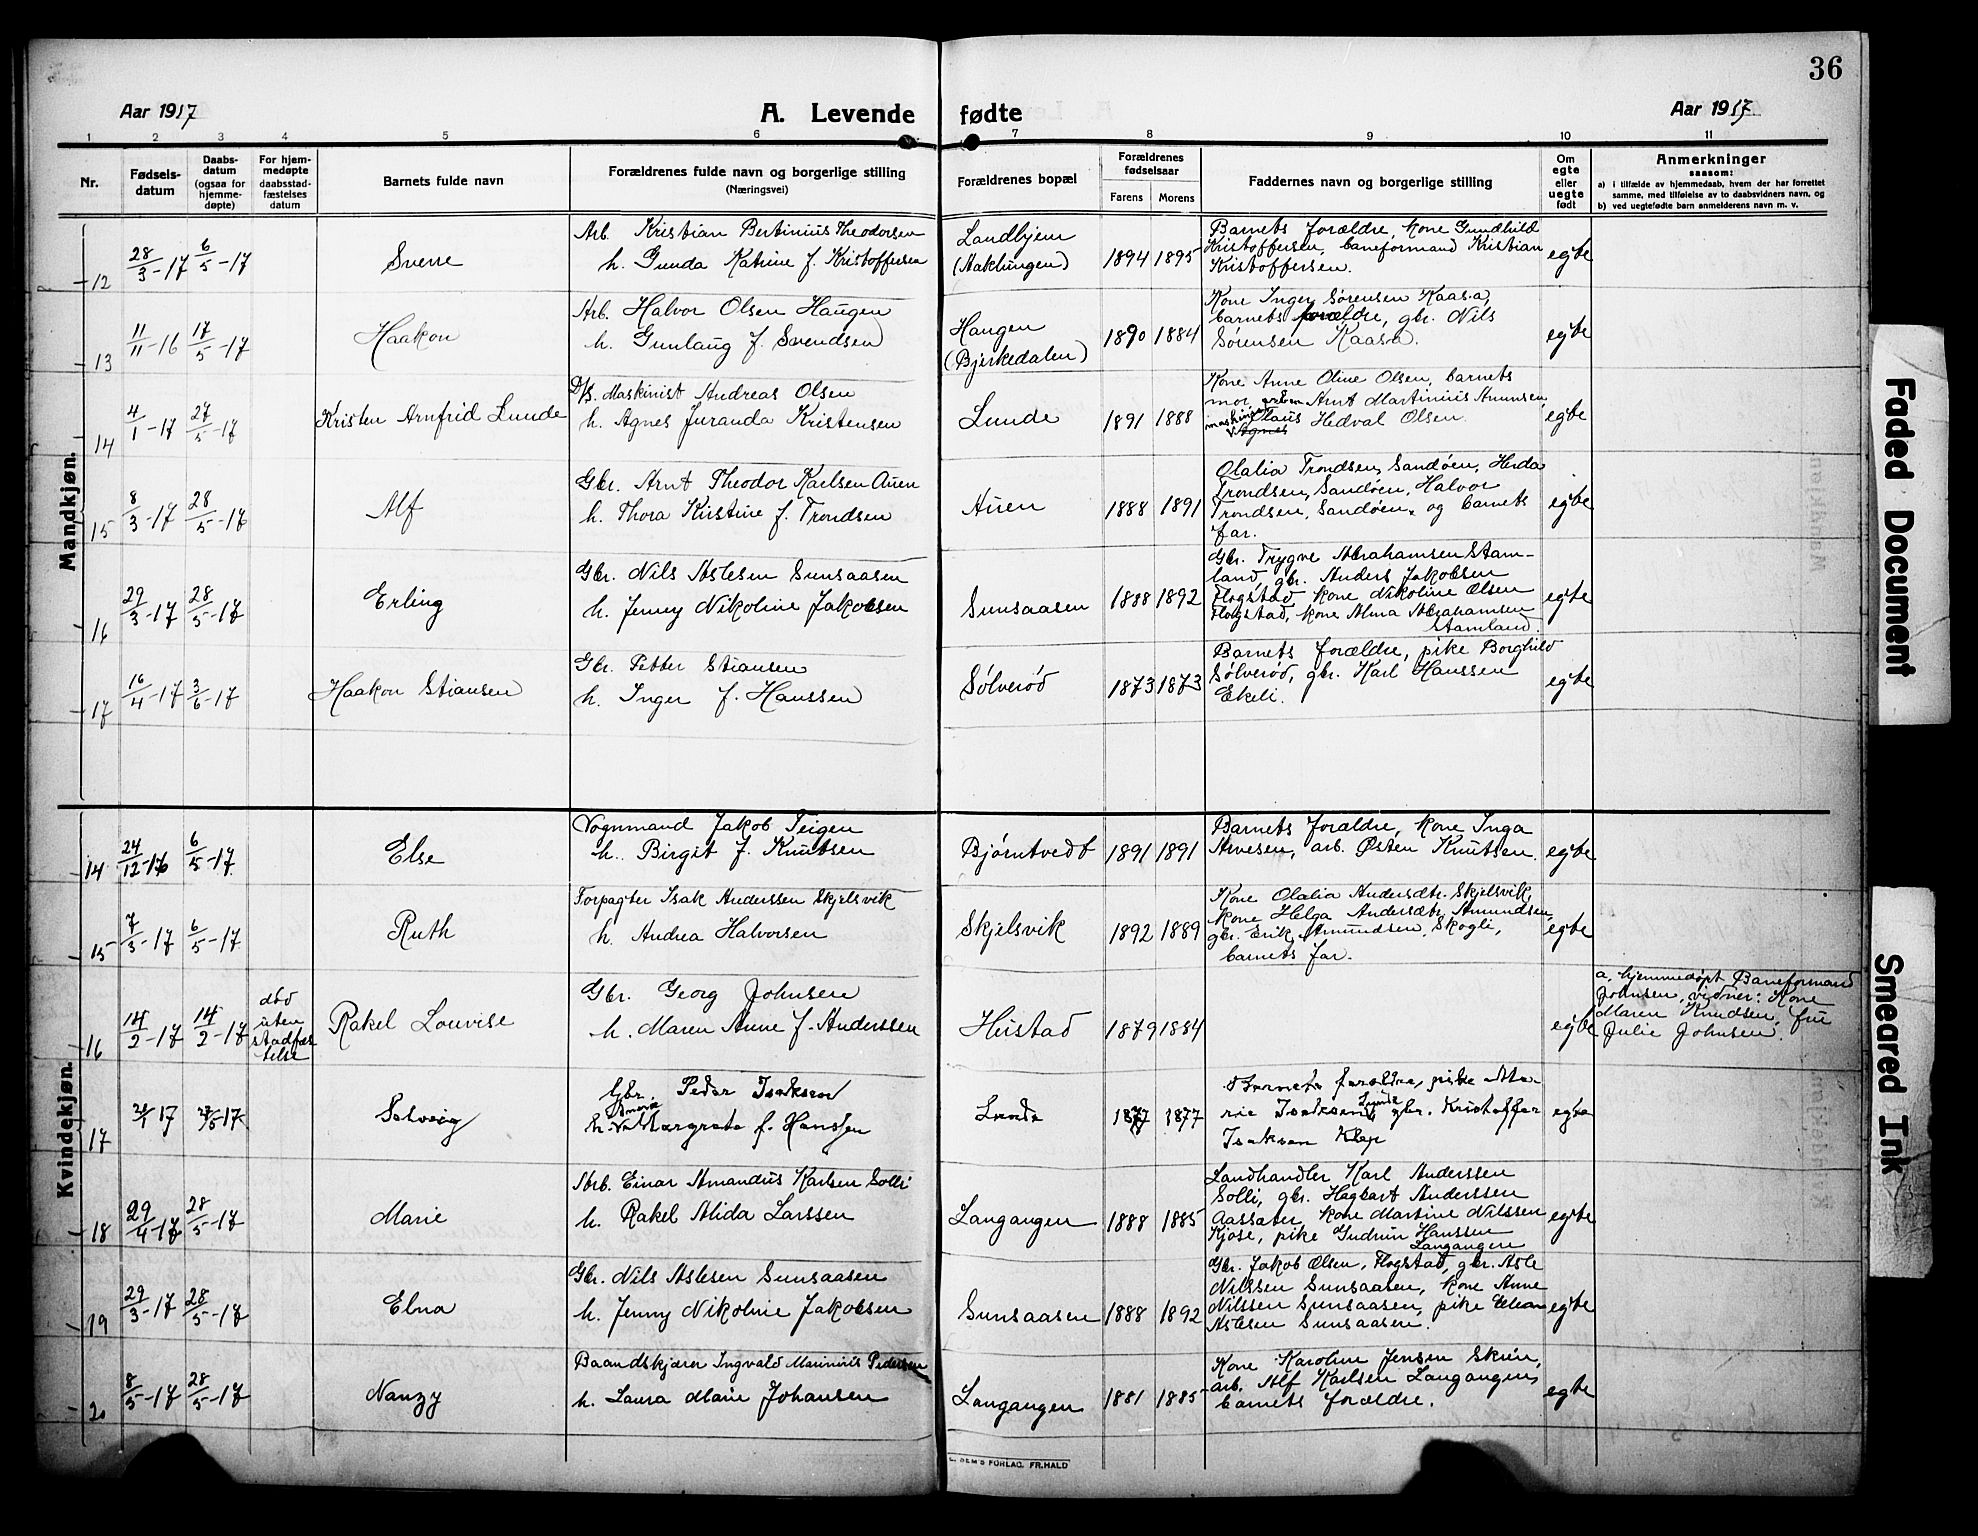 36
Aar 1917
A. Levende fødte
Aar 1917
1 2 3 4 5 6 7 8 9 10 11
Nr.
Fødsels-
datum
Daabs-
datum
(ogsaa for
hjemme-
døpte)
For hjem-
medøpte
daabsstad-
fæstelses
datum
Barnets fulde navn
Forældrenes fulde navn og borgerlige stilling
(Næringsvei)
Forældrenes bopæl
Forældrenes
fødselsaar
Farens Morens
Faddernes navn og borgerlige stilling
Om
egte
eller
uegte
født
Anmerkninger
saasom:
a) i tilfælde av hjemmedaab, hvem der har forrettet
samme, med tilføielse av to daabsvidners navn, og
b) ved uegtefødte barn anmelderens navn m. v.
Mandkjøn.
12 28/3-17 6/5-17 Sverre
Arb. Kristian Bertinius Theodorsen
h. Gunda Katrine f. Kristoffersen
Landbjem
(Haklungen)
1894 1895
Barnets forældre, kone Gundhild
Kristoffersen, baneformand Kristian
Kristoffersen.
egte
13 11/11-16 17/5-17 Haakon
Arb. Halvor Olsen Haugen
h. Gunlaug f. Svendsen
Haugen
(Bjerkedalen)
1890 1884
Kone Inger Sørensen Kaasa,
barnets forældre, gbr. Nils
Sørensen Kaasa.
egte
14 4/1-17 27/5-17 Kristen Arnfrid Lunde
D/S. Maskinist Andreas Olsen
h. Agnes Juranda Kristensen
Lunde
1891 1888
Kone Anne Oline Olsen, barnets
mor, Arnt Martinius Amundsen,
Olaus Hedval Olsen.
egte
15 8/3-17 28/5-17 Alf
Gbr. Arnt Theodor Karlsen Auen
h. Thora Kirstine f. Trondsen
Auen
1888 1891
Olalia Trondsen, Sandøen, Herda
Trondsen, Sandøen, Halvor
Trondsen, Sandøen, og barnets
far.
egte
16 29/3-17 28/5-17 Erling
Gbr. Nils Aslesen Sunsaasen
h. Jenny Nikoline Jakobsen
Sunsaasen
1888 1892
Gbr. Trygve Abrahamsen Stam-
land, gbr. Anders Jakobsen
Flogstad, kone Nikoline Olsen
Flogstad, kone Alma Abrahamsen
Stamland.
egte
17 16/4-17 3/6-17 Haakon Stiansen
Gbr. Petter Stiansen
h. Inger f. Hanssen
Sølverød
1873 1873
Barnets forældre, pike Borghild
Sølverød, gbr. Karl Hanssen
Ekeli.
egte
Kvindekjøn.
14 24/12-16 6/5-17 Else
Vognmand Jakob Teigen
h. Birgit f. Knutsen
Bjørntvedt
1891 1891
Barnets forældre, kone Inga
Arvesen, arb. Østen Knutsen.
egte
15 7/3-17 6/5-17 Ruth
Forpagter Isak Anderssen Skjelsvik
h. Andrea Halvorsen
Skjelsvik
1892 1889
Kone Olalia Andersdtr. Skjelsvik,
kone Helga Andersdtr. Amundsen,
gbr. Erik Amundsen, Skogli,
barnets far.
egte
16 14/2-17 14/2-17
død
uten
stadfæs
telse
Rakel Louvise
Gbr. Georg Johnsen
h. Maren Anne f. Anderssen
Heistad
1879 1884
egte
a, hjemmedøpt Baneformand
Johnsen, vidner: Kone
Maren Knudsen, fru
Julie Johnsen.
17 /1-17 27/5-17 Solveig
Gbr. Peder Isaksen
h. Margrete f. Hanssen
Lunde
1877 1877
Barnets forældre, pike Ma-
rie Isaksen Lunde, gbr. Kristoffer
Isaksen Klep
egte
18 29/4-17 28/5-17 Marie
Arb. Einar Amandus Karlsen Solli
h. Rakel Alida Larssen
Langangen
1888 1885
Landhandler Karl Anderssen
Solli, gbr. Hagbart Anderssen
Aassæter, kone Martine Nilssen
Kjøse, pike Gudrun Hanssen
Langangen
egte
19 29/3-17 28/5-17 Elna
Gbr. Nils Aslesen Sunsaasen
h. Jenny Nikoline Jakobsen
Sunsaasen
1888 1892
Gbr. Jakob Olsen, Flogstad, gbr. Asle
Nilssen Sunsaasen, kone Anne
Nilssen Sunsaasen, pike
Aslesen Sunsaasen.
egte
20 8/5-17 28/5-17 Nanzy
Baandskjærer Ingvald Marinius Pedersen
h. Laura Marie Johansen
Langangen
1881 1885
Kone Karoline Jensen Skrin,
arb. Alf Karlsen Langangen,
barnets forældre.
egte
FORLAG. FR.HALD
Faded Document
Smeared Ink